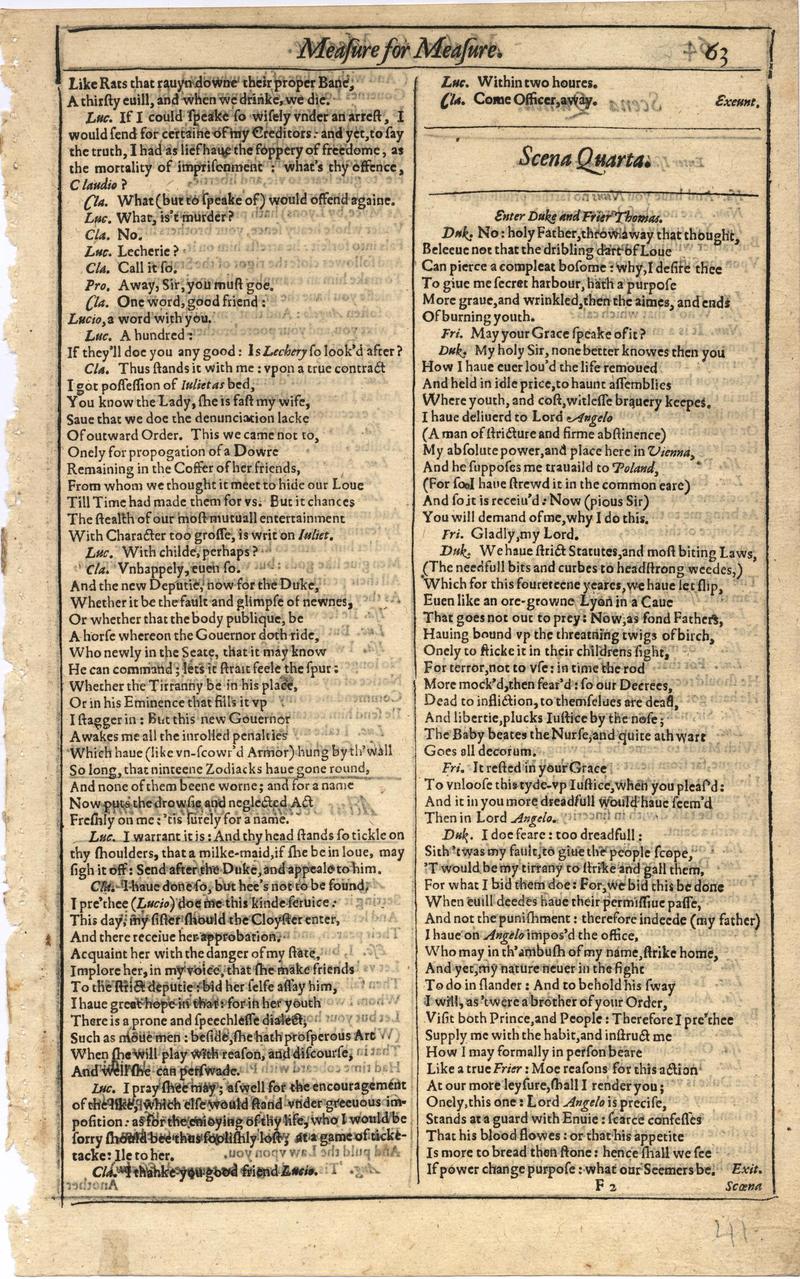 Meaſure for Meaſure. 63
Like Rats that rauyn downe their proper Bane,
A thirſty euill, and when we drinke, we die.
Luc. If I could ſpeake ſo wiſely vnder an arreſt, I
would ſend for certaine of my Creditors: and yet, to ſay
the truth, I had as lief haue the foppery of freedome, as
the mortality of impriſonment: what's thy offence,
Claudio?
Cla. What (but to ſpeake of) would offend againe.
Luc. What, is't murder?
Cla. No.
Luc. Lecherie?
Cla. Call it ſo.
Pro. Away, Sir, you muſt goe.
Cla. One word, good friend:
Lucio, a word with you.
Luc. A hundred:
If they'll doe you any good: Is Lechery ſo look'd after?
Cla. Thus ſtands it with me: vpon a true contract
I got poſſeſſion of Iulietas bed,
You know the Lady, ſhe is faſt my wife,
Saue that we doe the denunciation lacke
Of outward Order. This we came not to,
Onely for propogation of a Dowre
Remaining in the Coffer of her friends,
From whom we thought it meet to hide our Loue
Till Time had made them for vs. But it chances
The ſtealth of our moſt mutuall entertainment
With Character too groſſe, is writ on Iuliet.
Luc. With childe, perhaps?
Cla. Vnhappely, euen ſo.
And the new Deputie, now for the Duke,
Whether it be the fault and glimpſe of newnes,
Or whether that the body publique, be
A horſe whereon the Gouernor doth ride,
Who newly in the Seate, that it may know
He can command; lets it ſtrait feele the ſpur:
Whether the Tirranny be in his place,
Or in his Eminence that fills it vp
I ſtagger in: But this new Gouernor
Awakes me all the inrolled penalties
Which haue (like vn-ſcowr'd Armor) hung by th'wall
So long, that ninteene Zodiacks haue gone round,
And none of them beene worne; and for a name
Now puts the drowſie and neglected Act
Freſhly on me: 'tis ſurely for a name.
Luc. I warrant it is: And thy head ſtands ſo tickle on
thy ſhoulders, that a milke-maid, if ſhe be in loue, may
ſigh it off: Send after the Duke, and appeale to him.
Cla. I haue done ſo, but hee's not to be found.
I pre'thee (Lucio) doe me this kinde ſeruice:
This day, my ſiſter ſhould the Cloyſter enter,
And there receiue her approbation.
Acquaint her with the danger of my ſtate,
Implore her, in my voice, that ſhe make friends
To the ſtrict deputie: bid her ſelfe aſſay him,
I haue great hope in that: for in her youth
There is a prone and ſpeechleſſe dialect,
Such as moue men: beſide, ſhe hath proſperous Art
When ſhe will play with reaſon, and diſcourſe,
And well ſhe can perſwade.
Luc. I pray ſhee may; aſwell for the encouragement
of the like, which elſe would ſtand vnder greeuous im-
poſition: as for the enioying of thy life, who I would be
ſorry ſhould bee thus fooliſhly loſt, at a game of ticke-
tacke: Ile to her.
Cla. I thanke you good friend Lucio.
Luc. Within two houres.
Cla. Come Officer, away. Exeunt.
Scena Quarta.
Enter Duke and Frier Thomas.
Duk. No: holy Father, throw away that thought,
Beleeue not that the dribling dart of Loue
Can pierce a compleat boſome: why, I deſire thee
To giue me ſecret harbour, hath a purpoſe
More graue, and wrinkled, then the aimes, and ends
Of burning youth.
Fri. May your Grace ſpeake of it?
Duk. My holy Sir, none better knowes then you
How I haue euer lou'd the life remoued
And held in idle price, to haunt aſſemblies
Where youth, and coſt, witleſſe brauery keepes.
I haue deliuerd to Lord Angelo
(A man of ſtricture and firme abſtinence)
My abſolute power, and place here in Vienna,
And he ſuppoſes me trauaild to Poland,
(For ſo I haue ſtrewd it in the common eare)
And ſo it is receiu'd: Now (pious Sir)
You will demand of me, why I do this.
Fri. Gladly, my Lord.
Duk. We haue ſtrict Statutes, and moſt biting Laws,
(The needfull bits and curbes to headſtrong weedes,)
Which for this foureteene yeares, we haue let ſlip,
Euen like an ore-growne Lyon in a Caue
That goes not out to prey: Now, as fond Fathers,
Hauing bound vp the threatning twigs of birch,
Onely to ſticke it in their childrens ſight,
For terror, not to vſe: in time the rod
More mock'd, then fear'd: ſo our Decrees,
Dead to infliction, to themſelues are dead,
And libertie, plucks Iuſtice by the noſe;
The Baby beates the Nurſe, and quite athwart
Goes all decorum.
Fri. It reſted in your Grace
To vnlooſe this tyde-vp Iuſtice, when you pleaſ'd:
And it in you more dreadfull would haue ſeem'd
Then in Lord Angelo.
Duk. I doe feare: too dreadfull:
Sith 'twas my fault, to giue the people ſcope,
'T would be my tirrany to ſtrike and gall them,
For what I bid them doe: For, we bid this be done
When euill deedes haue their permiſſiue paſſe,
And not the puniſhment: therefore indeede (my father)
I haue on Angelo impos'd the office,
Who may in th'ambuſh of my name, ſtrike home,
And yet, my nature neuer in the fight
To do in ſlander: And to behold his ſway
I will, as 'twere a brother of your Order,
Viſit both Prince, and People: Therefore I pre'thee
Supply me with the habit, and inſtruct me
How I may formally in perſon beare
Like a true Frier: Moe reaſons for this action
At our more leyſure, ſhall I render you;
Onely, this one: Lord Angelo is preciſe,
Stands at a guard with Enuie: ſcarce confeſſes
That his blood flowes: or that his appetite
Is more to bread then ſtone: hence ſhall we ſee
If power change purpoſe: what our Seemers be. Exit.
F 2 Scœna